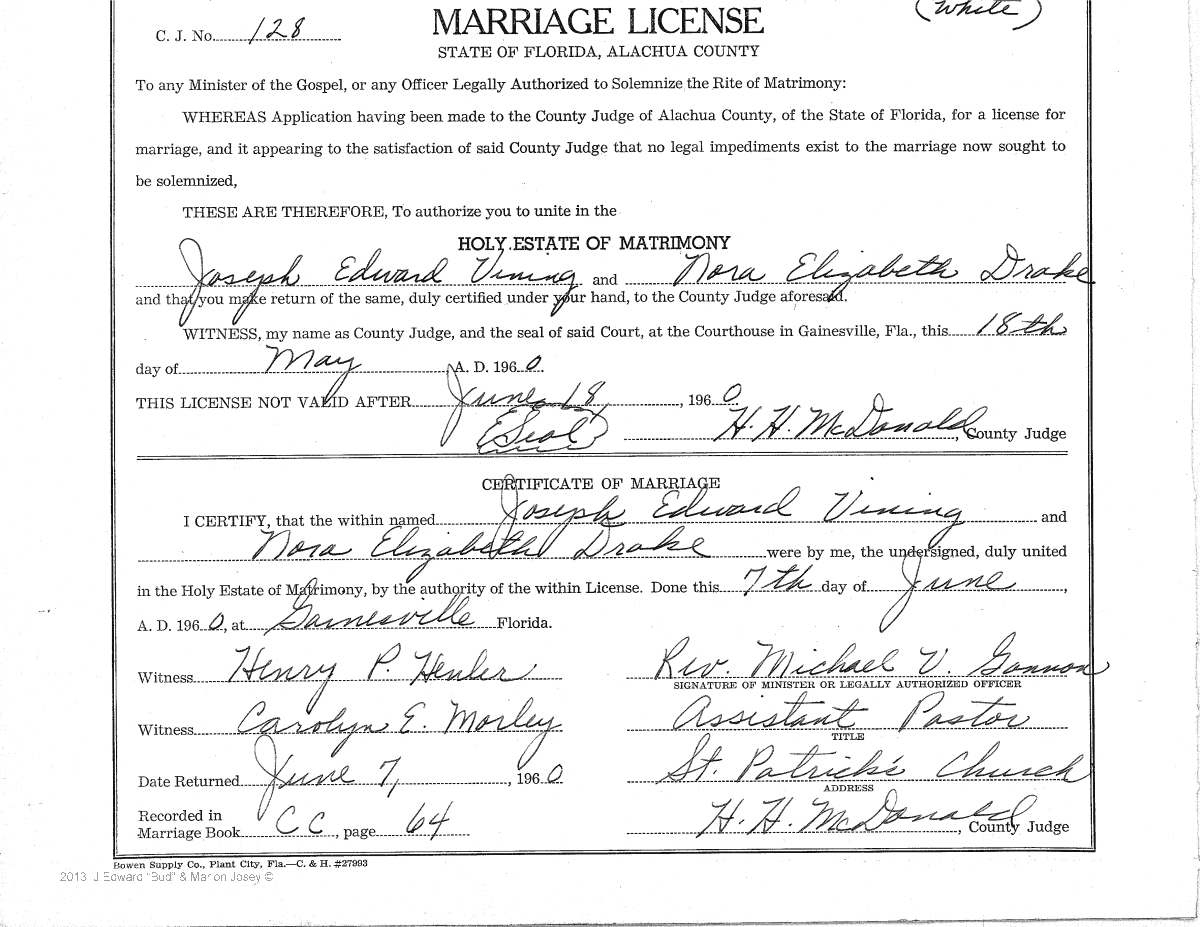 (White)
C. J. No. 128
MARRIAGE LICENSE
STATE OF FLORIDA, ALACHUA COUNTY
To any Minister of the Gospel, or any Officer Legally Authorized to Solemnize the Rite of Matrimony:
WHEREAS Application having been made to the County Judge of Alachua County, of the State of Florida, for a license for
marriage, and it appearing to the satisfaction of said County Judge that no legal impediments exist to the marriage now sought to
be solemnized,
THESE ARE THEREFORE, To authorize you to unite in the
HOLY ESTATE OF MATRIMONY
Joseph Edward Vining and Nora Elizabeth Drake
and that you make return of the same, duly certified under your hand, to the County Judge aforesaid.
WITNESS, my name as County Judge, and the seal of said Court, at the Courthouse in Gainesville, Fla., this 18th
day of May A. D. 1960.
THIS LICENSE NOT VALID AFTER June 18, 1960
(Seal) H. H. McDonald, County Judge
CERTIFICATE OF MARRIAGE
I CERTIFY, that the within named Joseph Edward Vining and
Nora Elizabeth Drake were by me, the undersigned, duly united
in the Holy Estate of Matrimony, by the authority of the within License. Done this 7th day of June,
A. D. 1960, at Gainesville Florida.
Witness Henry P. Henler Rev. Michael V. Gannon
SIGNATURE OF MINISTER OR LEGALLY AUTHORIZED OFFICER
Witness Carolyn E. Morley Assistant Pastor
TITLE
Date Returned June 7, 1960 St. Patrick's Church
ADDRESS
Recorded in
Marriage Book CC, page 64 H. H. McDonald, County Judge
Bowen Supply Co., Plant City, Fla.—C. & H. #27993
2013 J Edward "Bud" & Marion Josey ©